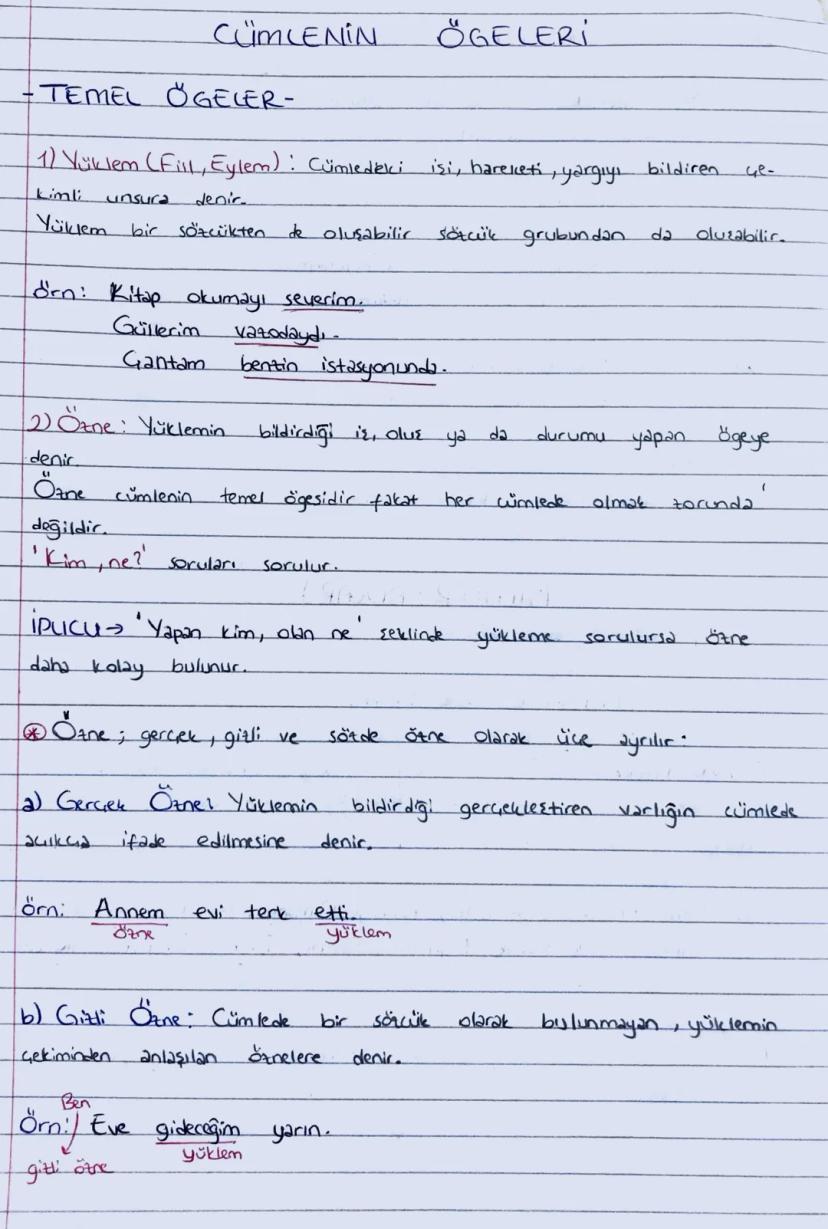 CÜMLENİN ÖGELERİ
- TEMEL ÖGELER -
1) Yüklem (Fiil, Eylem) : Cümledeki işi, hareketi, yargıyı bildiren çe-
kimli unsura denir.
Yüklem bir sözcükten de oluşabilir sözcük grubundan da oluşabilir.
Örn: Kitap okumayı severim.
Güllerim vazodaydı.
Çantam benzin istasyonunda.
2) Özne: Yüklemin bildirdiği iş, oluş ya da durumu yapan ögeye
denir.
Özne cümlenin temel ögesidir fakat her cümlede olmak zorunda
değildir.
'Kim, ne?' soruları sorulur.
İPUCU → 'Yapan kim, olan ne' şeklinde yükleme sorulursa özne
daha kolay bulunur.
* Özne; gerçek, gizli ve sözde özne olarak üçe ayrılır:
a) Gerçek Özne: Yüklemin bildirdiği gerçekleştiren varlığın cümlede
açıkça ifade edilmesine denir.
Örn: Annem evi terk etti.
özne yüklem
b) Gizli Özne: Cümlede bir sözcük olarak bulunmayan, yüklemin
çekiminden anlaşılan öznelere denir.
Ben
Örn: Eve gideceğim yarın.
gizli özne yüklem